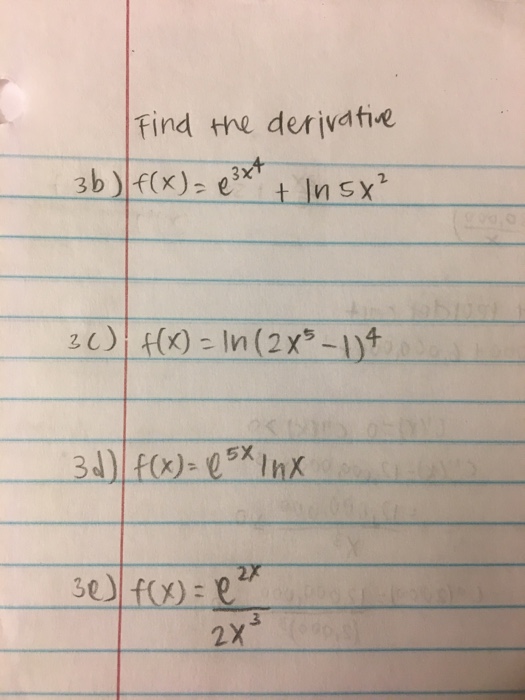 Find the derivative
3b) f(x) = e^{3x^4} + ln 5x²
3c) f(x) = ln(2x⁵ - 1)⁴
3d) f(x) = e^{5x} ln x
3e) f(x) = e^{2x}
2x³